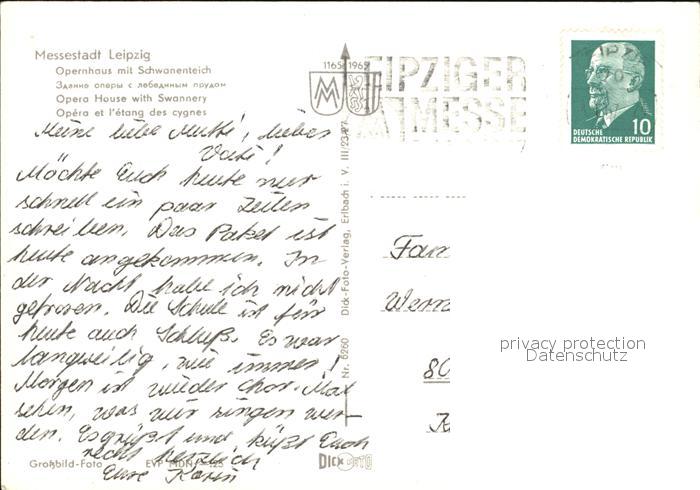 Messestadt Leipzig
Opernhaus mit Schwanenteich
Здание оперы с лебединым прудом
Opera House with Swannery
Opéra et l'étang des cygnes
1165 1965
LEIPZIGER
MESSE
DEUTSCHE
DEMOKRATISCHE REPUBLIK
10
Meine liebe Mutti, lieber
Vati!
Möchte Euch heute nur
schnell ein paar Zeilen
schreiben. Das Paket ist
heute angekommen. In
der Nacht habe ich nicht
gefroren. Die Schule ist für
heute auch Schluß. Es war
langweilig, wie immer!
Morgen ist wieder Chor. Mal
sehen, was wir singen wer-
den. Es grüßt und küßt Euch
recht herzlich
Eure Karin
Großbild-Foto
EVP MDN
Nr. 5260 Dick-Foto-Verlag, Erlbach i. V. III/23/27
DICK FOTO
Fam
Wern
80
privacy protection
Datenschutz